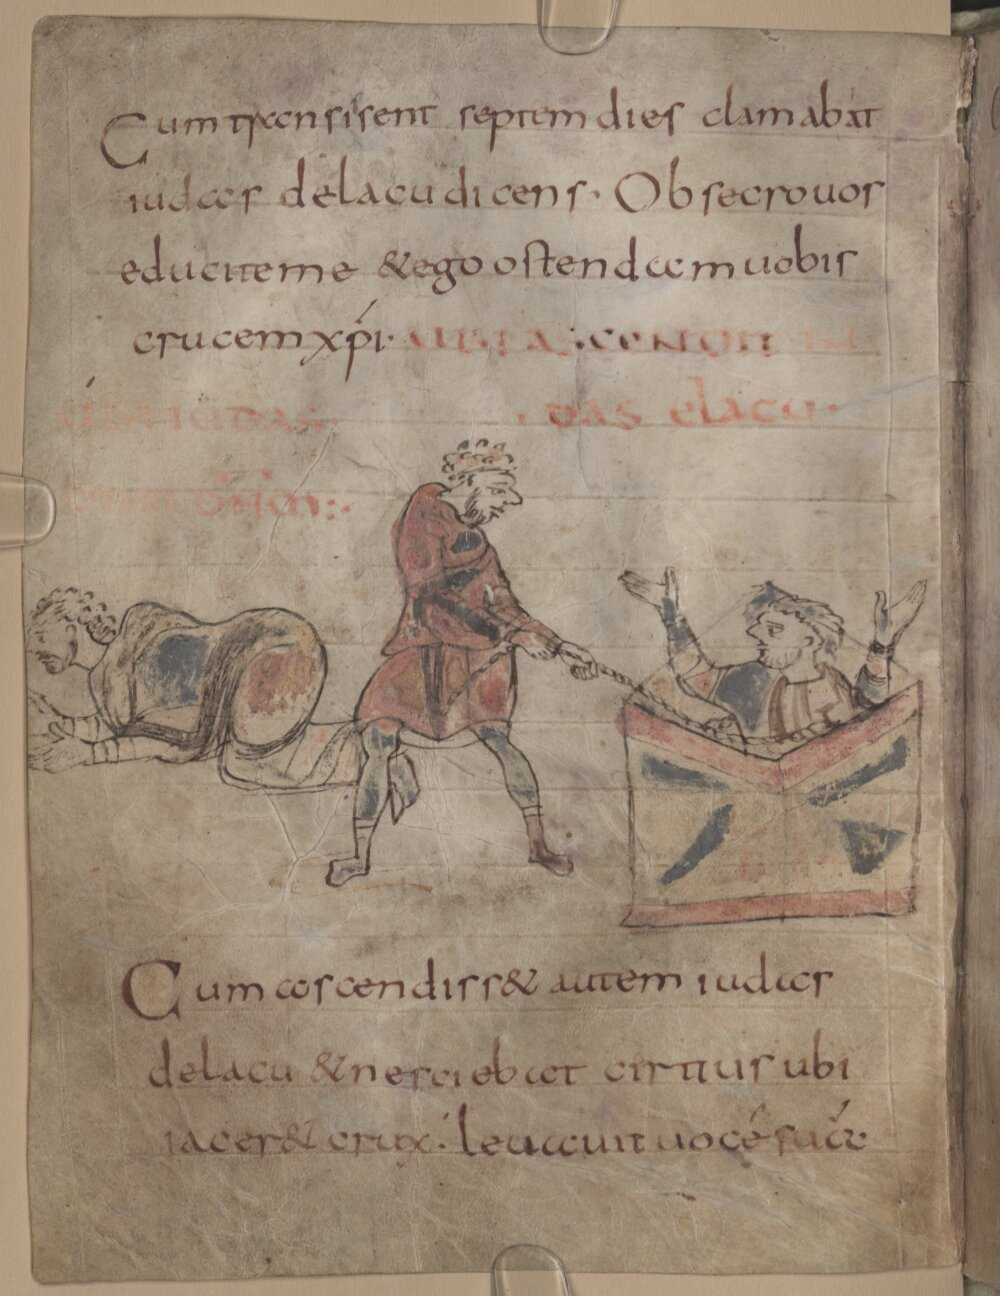 Cum transsissent septem dies clamabat
iudas delacu dicens· Obsecro uos
educite me &ego ostendam uobis
crucem xp̄i· UBI ASCENDIT IU
UBI IUDAS· ·DAS elacu·
Cum ascendiss& autem iudas
delacu &nesciebat certius ubi
iacer& crux· leuauit uocē suā &